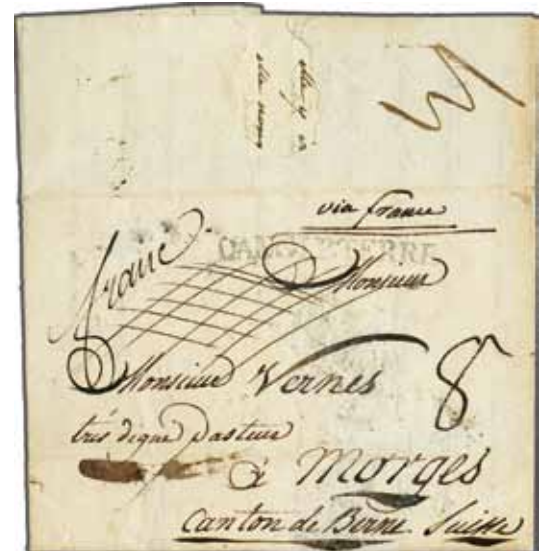 via france
franc
D'ANGLETERRE
Monsieur
Monsieur Vernes
très digne pasteur
8
à Morges
Canton de Berne Suisse